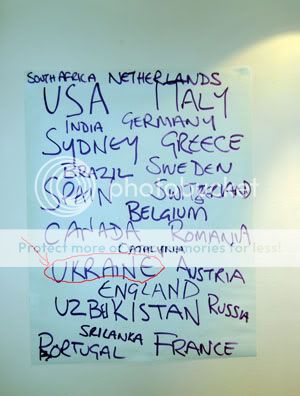 SOUTH AFRICA NETHERLANDS
USA ITALY
INDIA GERMANY
SYDNEY GREECE
BRAZIL SWEDEN
SPAIN SWITZERLAND
BELGIUM
CANADA ROMANIA
CATALUNYA
UKRANE AUSTRIA
ENGLAND
UZBEKISTAN RUSSIA
SRILANKA
PORTUGAL FRANCE
photobucket
Protect more of your memories for less!